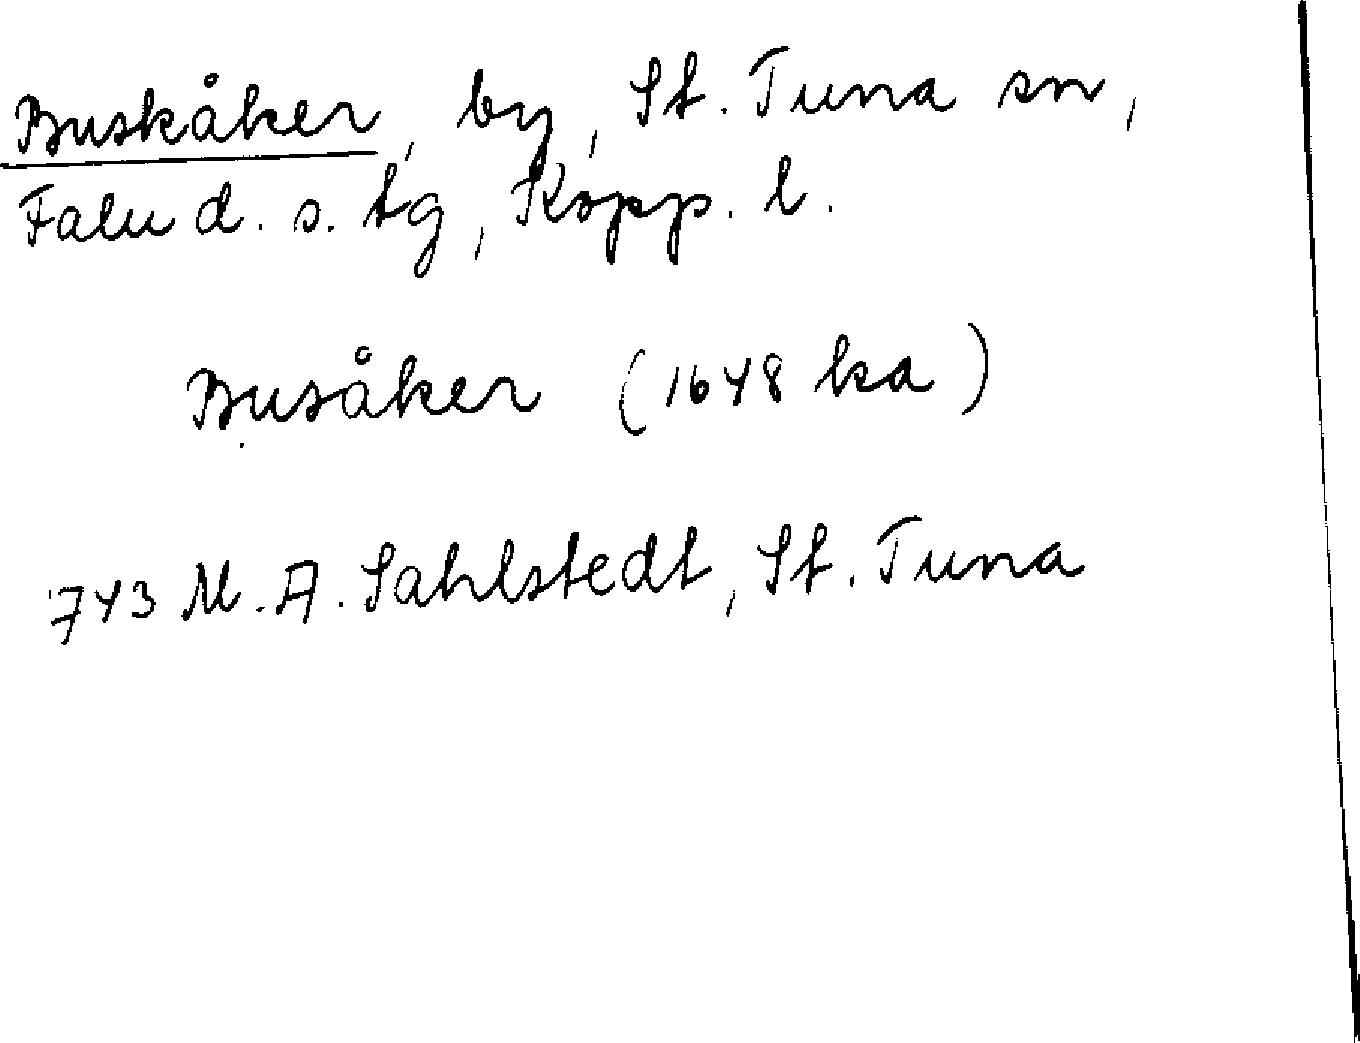 Buskåker, by, St. Tuna sn,
Falu d. s. tg, Kopp. l.
Busåker (1648 ka)
743 M. A. Sahlstedt, St. Tuna